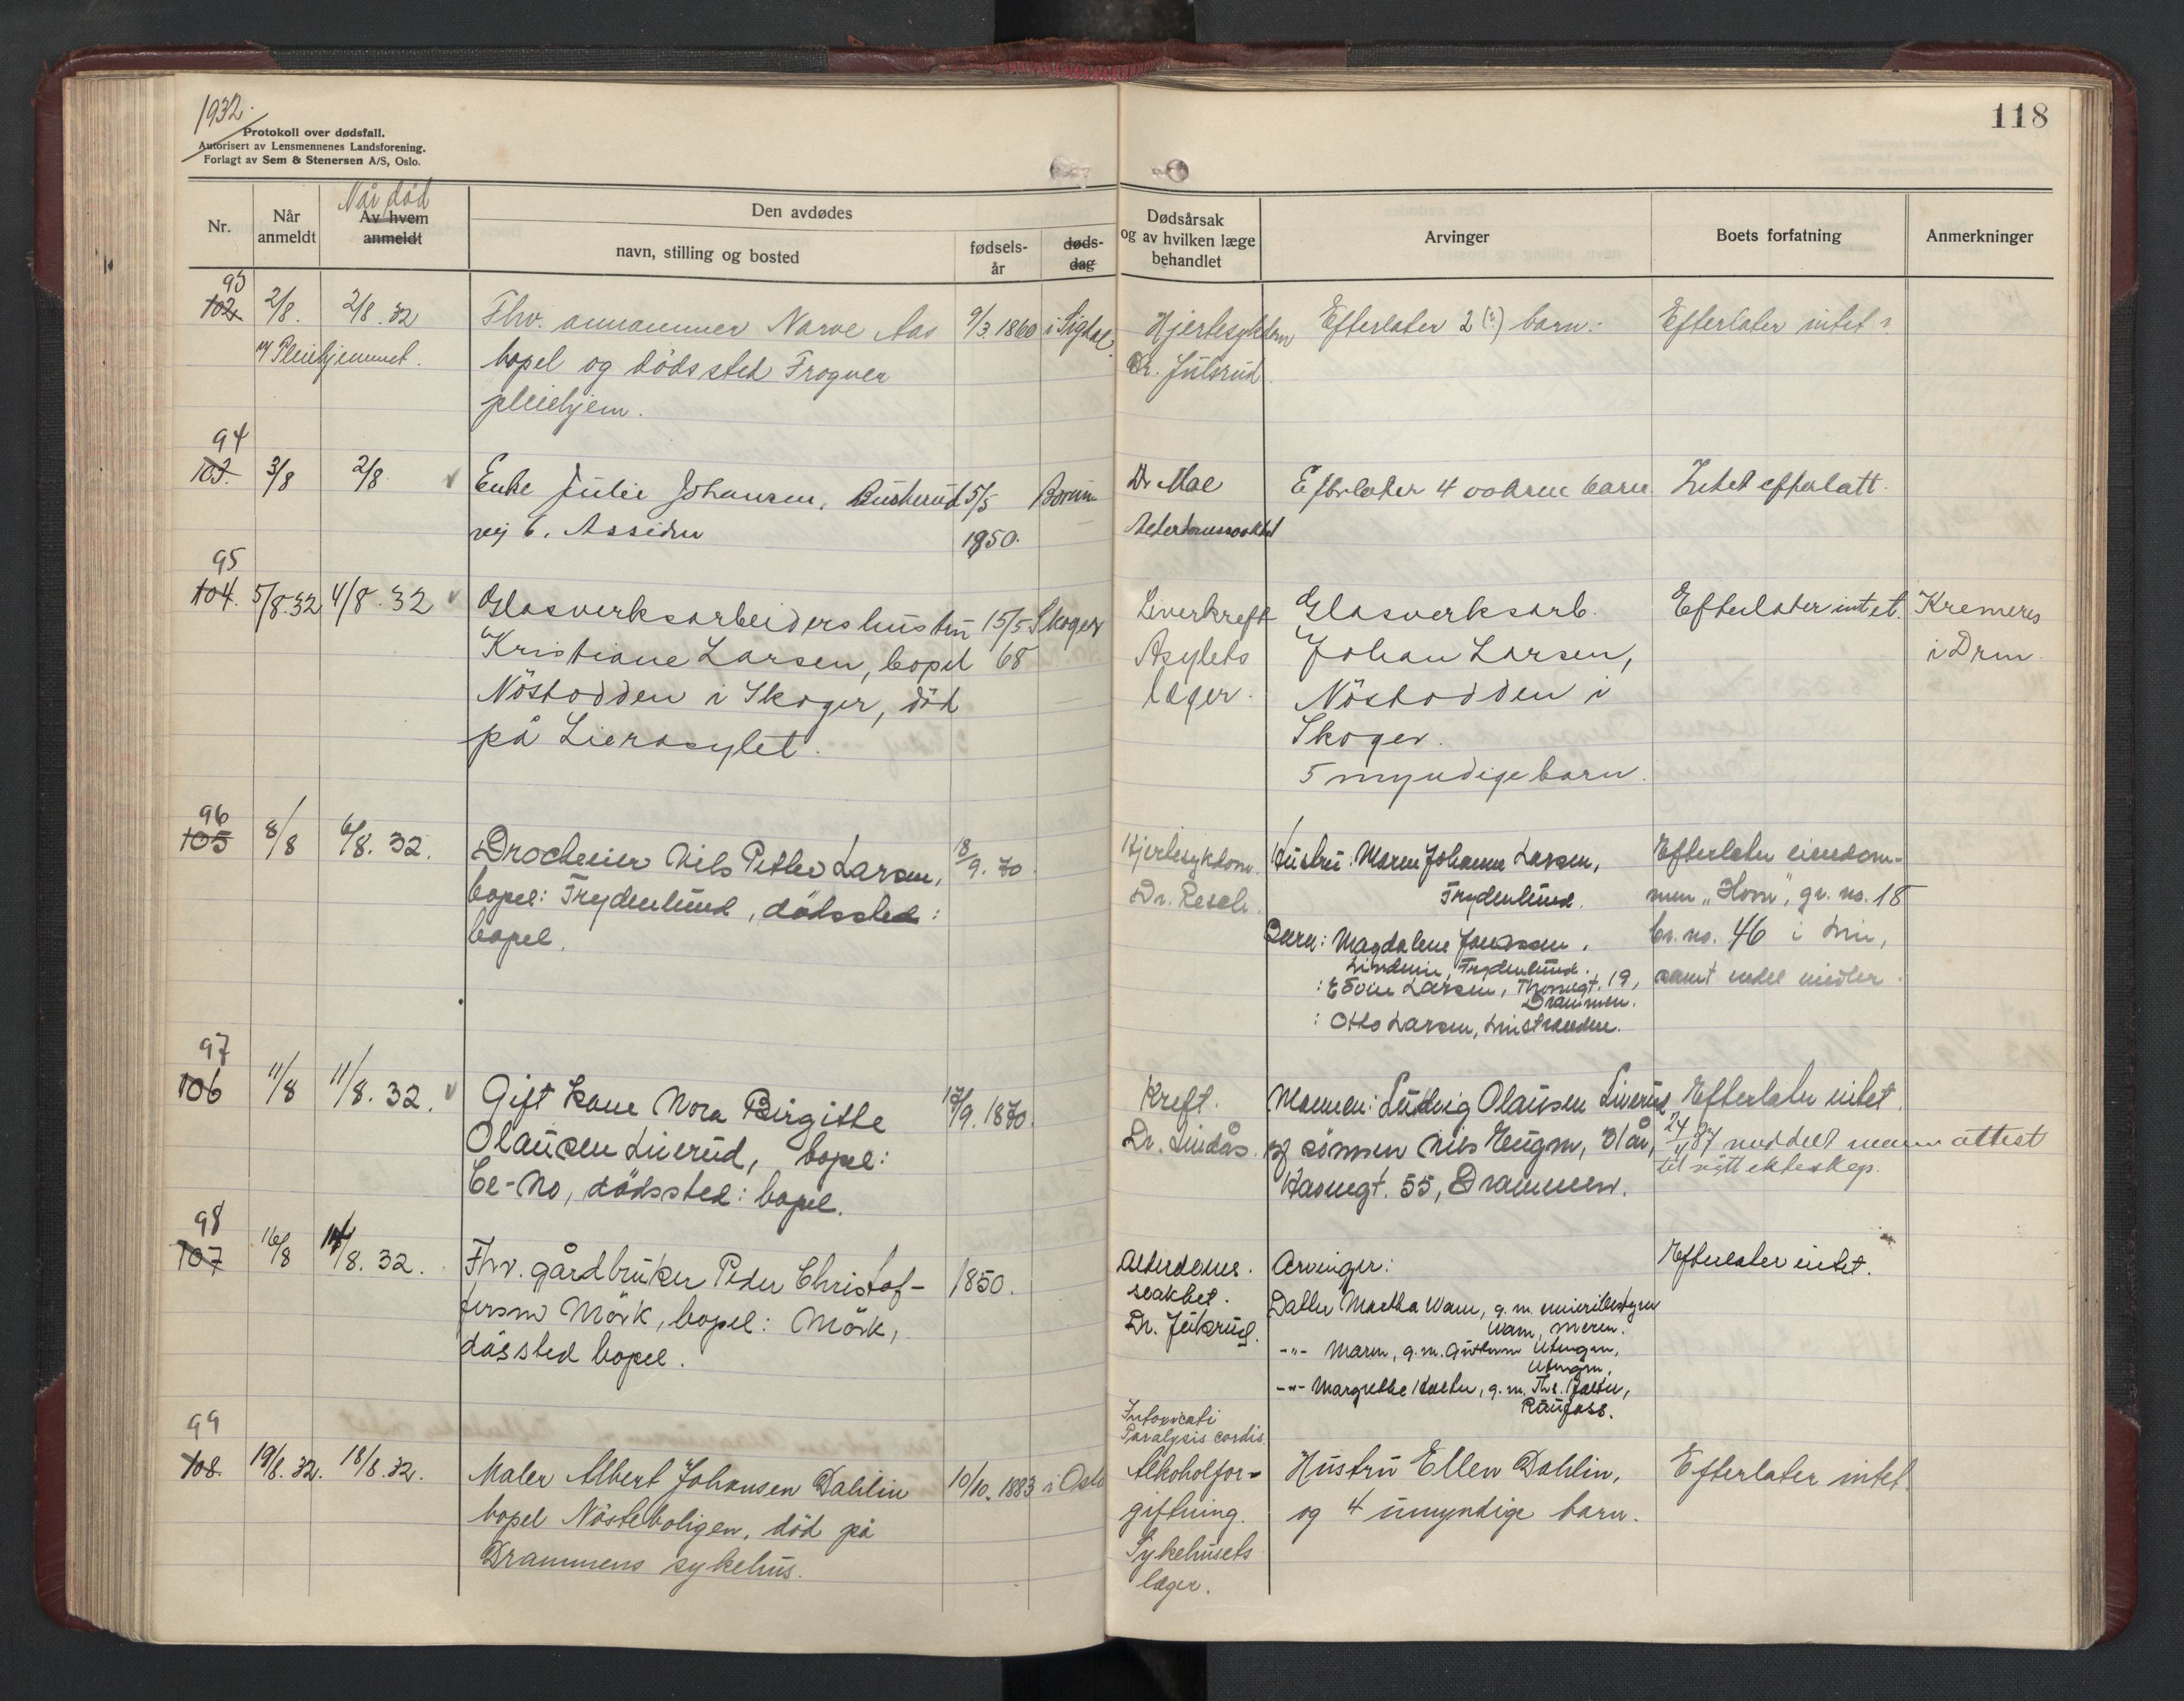 1932.
118
Protokoll over dødsfall.
Autorisert av Lensmennenes Landsforening.
Forlagt av Sem & Stenersen A/S, Oslo.
Nr.
Når
anmeldt
Når død
Av hvem
anmeldt
Den avdødes
navn, stilling og bosted
fødsels-
år
døds-
dag
Dødsårsak
og av hvilken læge
behandlet
Arvinger
Boets forfatning
Anmerkninger
93
102 2/8. 2/8.32 Fhv. Narve Aas 9/3.1860 i Sigdal Hjertesykdom Efterlater 2 (?) barn: Efterlater intet ?
Pleiehjemmet. bopel og dödssted Frogner Dr. Julsrud
pleiehjem.
94
103. 3/8 2/8 Enke Julie Johansen, Buskerud 5/5 Dr Moe Efterlater 4 voksne barn Intet efterlatt.
vej 6. Assiden 1850.
95
104. 5/8.32 4/8.32 Glasverksarbeiders hustru 15/5 Skoger Leverkreft Glasverksarb. Efterlater intet. Kremeres
Kristiane Larsen, bopel 68 Asylets Johan Larsen, i Drm.
Nöstodden i Skoger, död læger. Nöstodden i
på Lierasylet. Skoger.
5 myndige barn.
96
105 8/8 6/8.32. Drocheeier Nils Petter Larsen, 18/9.70. Hjertesykdom. Hustru: Maren Johanne Larsen, Efterlater eiendom-
bopel: Frydenlund, dödssted: Dr. Resch. Frydenlund. men "Horn", gr. no. 18
bopel. Barn: Magdalene br. no. 46 i Lier,
Frydenlund. samt endel midler.
: Larsen, 19,
Drammen.
: Otto Larsen, Lierstranden.
97
106 11/8 11/8.32. Gift kone Nora Birgitte 17/9.1870. Kreft. Mannen: Ludvig Olausen Liverud Efterlater intet.
Olausen Liverud, bopel: Dr. Lindås. sönnen Nils 31 år, 37 meddelt mannen attest
dödssted: bopel. 55, Drammen. til nytt ekteskap.
98
107 16/8 14/8.32. Fhv. gårdbruker Peder Christof- 1850. Alderdoms- Arvinger: Efterlater intet.
fersen Mörk, bopel: Mörk, svakhet. Datter Martha Wam, g. m.
dössted bopel. Dr. Julsrud. Wam,
-"- Maren, g. m.
-"- Margrethe g. m. Ths.
Raufoss.
99
Intoxicati
Paralysis cordis.
108. 19/8.32. 18/8.32. Maler Albert Johansen Dahlin 10/10.1883 i Oslo Alkoholfor- Hustru Ellen Dahlin, Efterlater intet.
bopel Nösteboligen, död på giftning. og 4 umyndige barn.
Drammens sykehus. Sykehusets
læger.